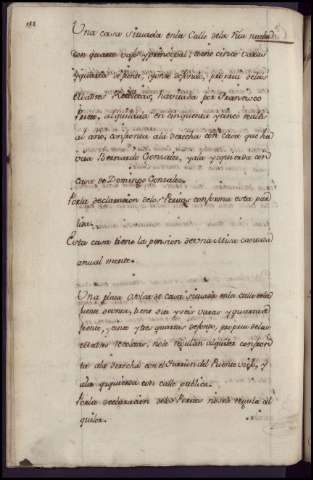 Una casa Situada enla Calle dela Rua
con quarto vajo y principal; tiene cinco varas
y quarta de frente, y de fondo, propia delas
Madres Recoletas, havitada por Francisco
alquilada en cinquenta y cinco reales
al año, confronta ala derecha con Casa que ha
vita Bernardo Gonzalez, y ala yzquierda con
Casa de Domingo Gonzalez.
Por la declaracion delos Peritos conforma esta par
tida.
Esta casa tiene la pension de una Misa cantada
anual mente.
Una plaza Solar de Casa Situada enla calle dela
tiene diez y seis varas y quarta de
frente, y once y tres quartas de fondo, propia delas
Madres Recoletas, nose regulan alquiler confron
ta ala derecha con el del Puente viejo, y
ala yzquierda con calle publica.
Por la declaracion delos Peritos nose regula al
quiler.